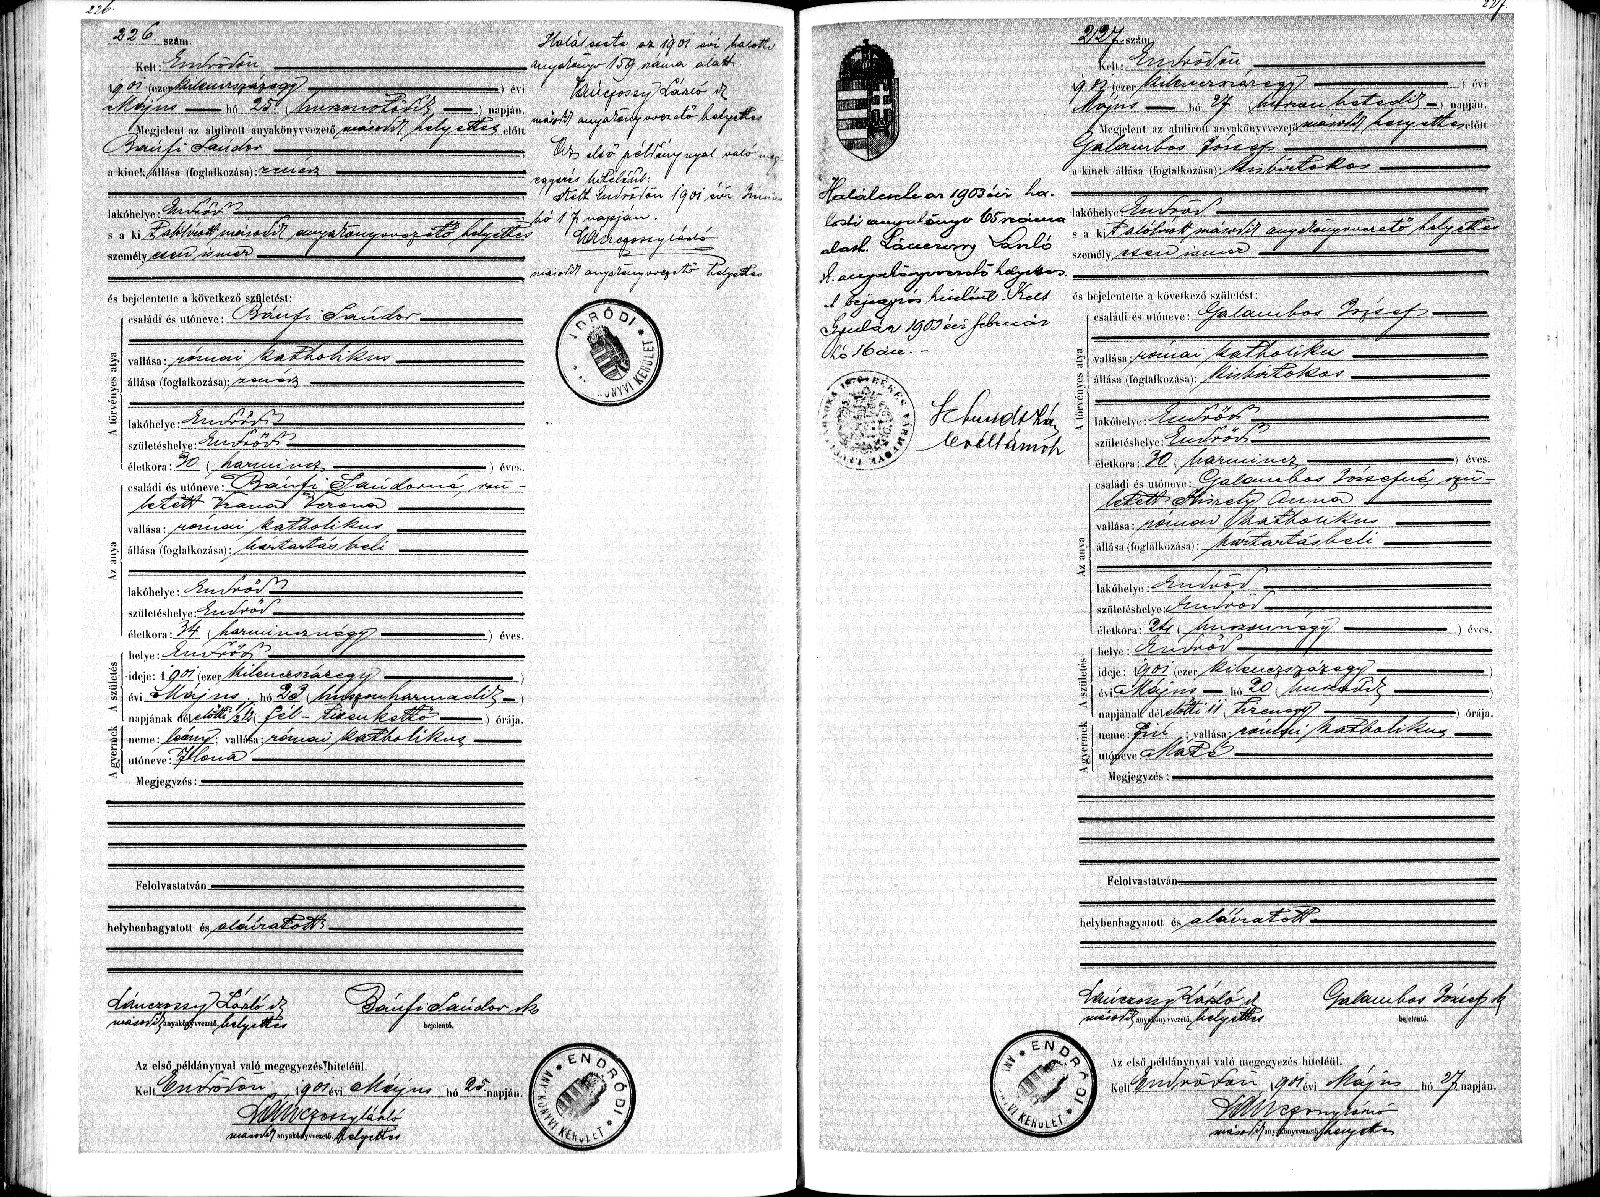 226.
226 szám
Kelt: Endrődön
1901 (ezer kilenczszázegy ) évi
Május hó 25 ( huszonötödik ) napján.
Megjelent az alulirott anyakönyvvezető második helyettes előtt
Bánfi Sándor
a kinek állása (foglalkozása):
lakóhelye: Endrőd
s a ki t alólirott második anyakönyvvezető helyettes
személy esen ismer
és bejelentette a következő születést:
A törvényes atya
családi és utóneve: Bánfi Sándor
vallása: római katholikus
állása (foglalkozása):
lakóhelye: Endrőd
születéshelye: Endrőd
életkora: 30 ( harmincz ) éves.
Az anya
családi és utóneve: Bánfi Sándorné, szü-
letett Verona
vallása: római katholikus
állása (foglalkozása): háztartásbeli
lakóhelye: Endrőd
születéshelye: Endrőd
életkora: 34 ( harmincznégy ) éves.
A születés
helye: Endrőd
ideje: 1901 (ezer kilenczszázegy )
évi Május hó 23 ( huszonharmadik )
napjának dél előtti 1/2 12 ( fél-tizenkettő ) órája.
A gyermek
neme: leány; vallása: római katholikus
utóneve: Ilona
Megjegyzés:
Felolvastatván
helybenhagyatott és aláiratott
Lánczossy László dr
második anyakönyvvezető helyettes
Bánfi Sándor sk
bejelentő.
Az első példánynyal való megegyezés hiteléül
Kelt Endrődön 1901 évi Május hó 25 napján.
Lánczossy László
második anyakönyvvezető helyettes
ENDRŐDI ANYAKÖNYVI KERÜLET
Halál esete az 1901 évi halotti
anyakönyv 159 száma alatt
Lánczossy László dr
második anyakönyvvezető helyettes
Az első példánynyal való meg-
egyezés hiteléül:
Kelt Endrődön 1901 évi Június
hó 17 napján.
Lánczossy László
második anyakönyvvezető helyettes
ENDRŐDI ANYAKÖNYVI KERÜLET
227.
227 szám
Kelt: Endrődön
1901 (ezer kilenczszázegy ) évi
Május hó 27 ( huszonhetedik ) napján.
Megjelent az alulirott anyakönyvvezető második helyettes előtt
Galambos József
a kinek állása (foglalkozása): kisbirtokos
lakóhelye: Endrőd
s a ki t alólirott második anyakönyvvezető helyettes
személy esen ismer
és bejelentette a következő születést:
A törvényes atya
családi és utóneve: Galambos József
vallása: római katholikus
állása (foglalkozása): kisbirtokos
lakóhelye: Endrőd
születéshelye: Endrőd
életkora: 30 ( harmincz ) éves.
Az anya
családi és utóneve: Galambos Józsefné, szü-
letett Anna
vallása: római katholikus
állása (foglalkozása): háztartásbeli
lakóhelye: Endrőd
születéshelye: Endrőd
életkora: 24 ( huszonnégy ) éves.
A születés
helye: Endrőd
ideje: 1901 (ezer kilenczszázegy )
évi Május hó 20 ( huszadik )
napjának dél előtti 11 ( tizenegy ) órája.
A gyermek
neme: fiú; vallása: római katholikus
utóneve Máté
Megjegyzés:
Felolvastatván
helybenhagyatott és aláiratott
Lánczossy László dr
második anyakönyvvezető helyettes
Galambos József sk
bejelentő.
Az első példánynyal való megegyezés hiteléül.
Kelt Endrődön 1901 évi Május hó 27 napján.
Lánczossy László
második anyakönyvvezető helyettes
ENDRŐDI ANYAKÖNYVI KERÜLET
Halálesete az 1903 évi ha-
lotti anyakönyv 65 száma
alatt. Lánczossy László
h. anyakönyvvezető helyettes.
A bejegyzés hiteléül. Kelt
Gyulán 1903 évi február
hó 16 án.
BÉKÉS VÁRMEGYE